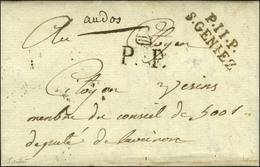 P.11.P.
S.GENIEZ
audos
Au Citoyen
P. P.
Citoyen Yesins
membre du conseil de 500
deputé de l'aveiron